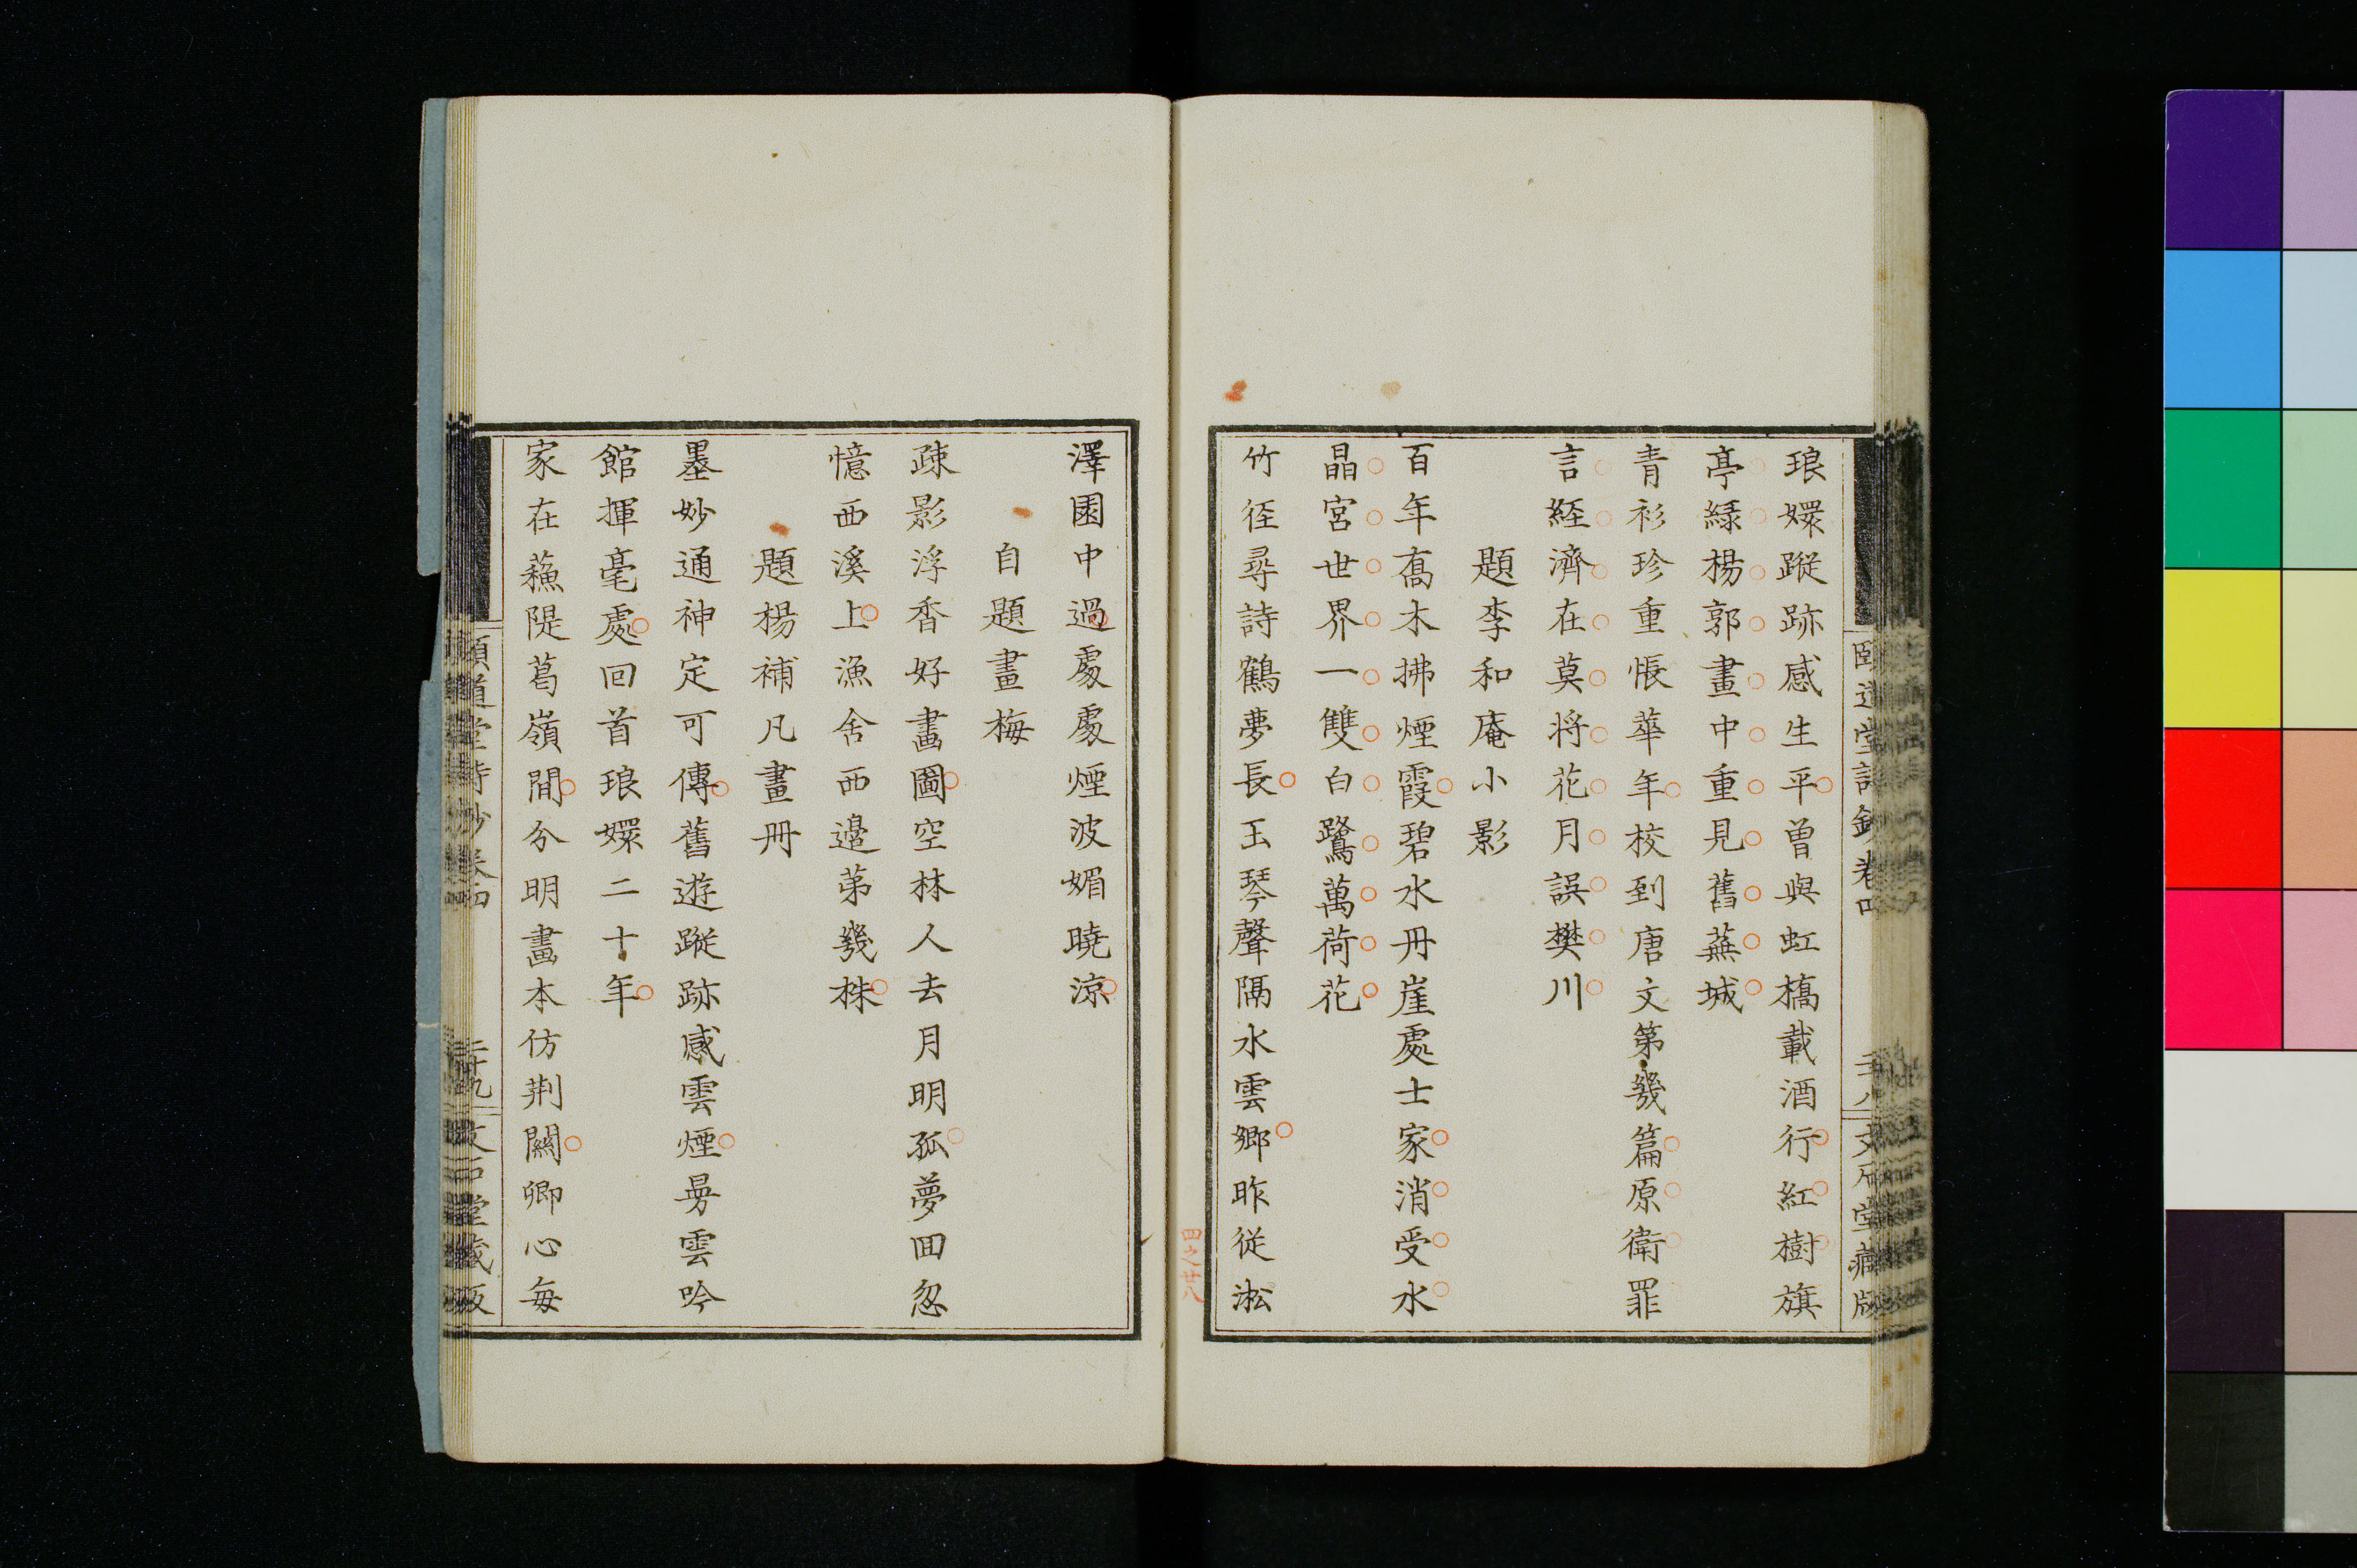 琅嬛蹤跡感生平曾與虹橋載酒行紅樹旗
亭綠楊郭畫中重見舊蕪城
青衫珍重悵華年校到唐文第幾篇原衛罪
言經濟在莫將花月誤樊川
題李和庵小影
百年喬木拂煙霞碧水丹崖處士家消受水
晶宮世界一雙白鷺萬荷花
竹徑尋詩鶴夢長玉琴聲隔水雲鄉昨從淞
四之廿八
澤園中過處處煙波媚曉涼
自題畫梅
疎影浮香好畫圖空林人去月明孤夢回忽
憶西溪上漁舍西邊第幾株
題楊補凡畫冊
墨妙通神定可傳舊遊蹤跡感雲煙曇雲吟
館揮毫處回首琅嬛二十年
家在蘇隄葛嶺間分明畫本仿荆關卿心每
頤道堂詩鈔卷四
二十九
文石堂藏版